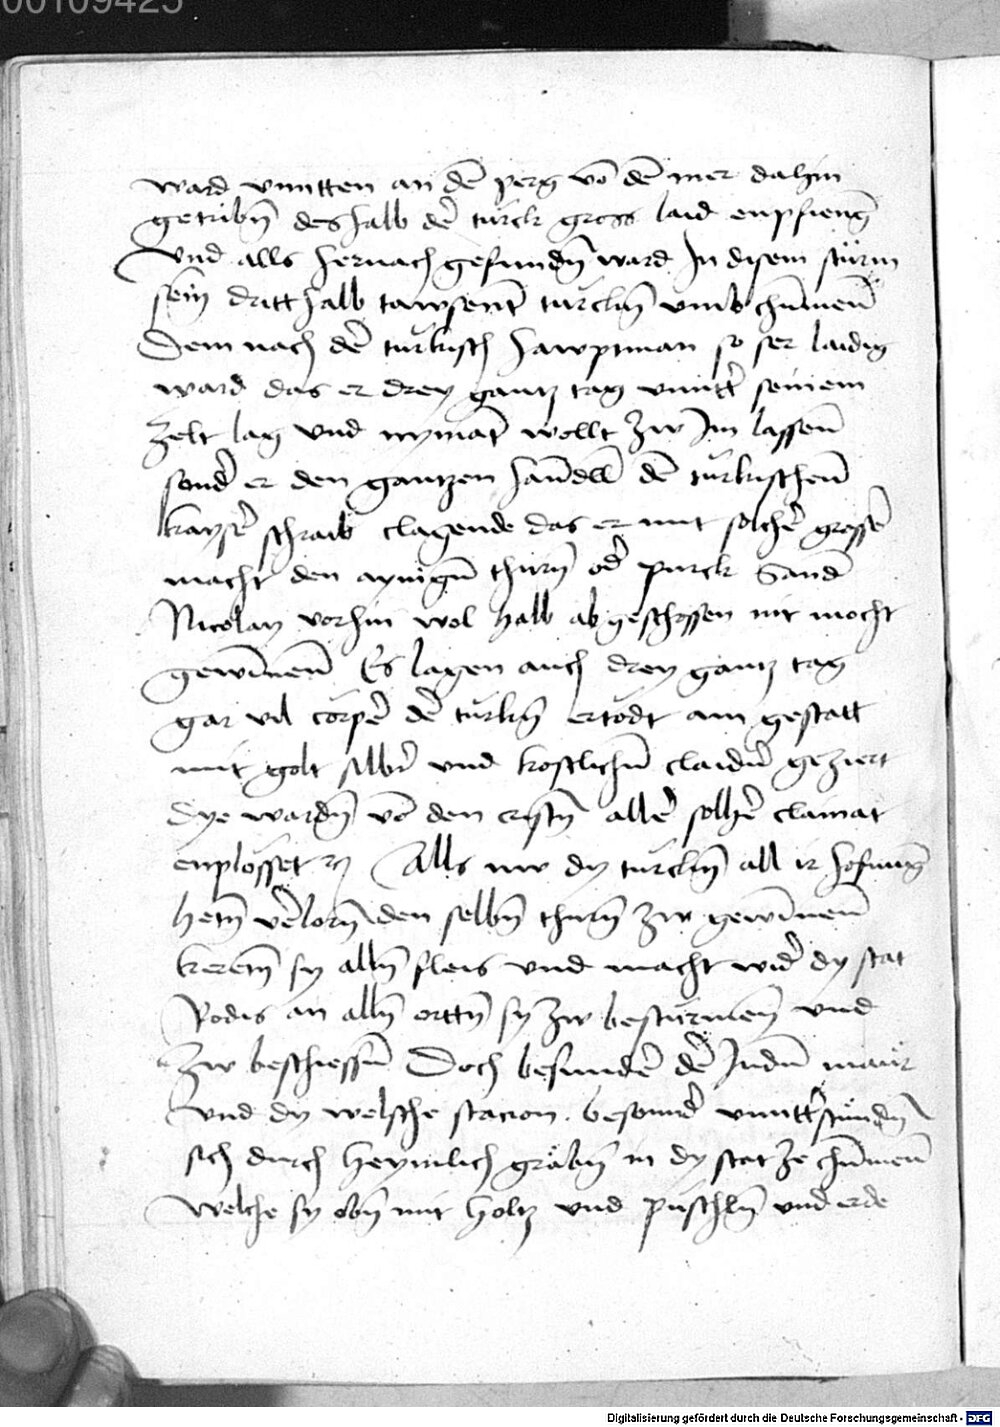 00109425
ward vnntten an dē perg vō dē mer dahin
getribn̄ deshalb der türck gross laid enpfieng
Vnd alls hernach gefundn̄ ward In disem stürm
sein dritthalb tawsent türckn̄ vmb chumen
Dem nach der türkisch hawptman so ser laidig
ward das er drey gantz tag vnntter seinem
zelt lag vnd nymant wollt zw Im lassen
sonder er den gantzen handell dē türkischen
kayser schraib clagende das er mit solcher grosser
macht den aynigen thurn oder purck Sand
Nicolay vorhin wol halb abgeschossen nit mocht
gewinnen Es lagen auch drey gantz tag
gar vil corper der türkn̄ ertödt am gestatt
mit golt silber vnd kostlichen claider geziert
Dye wardn̄ vō den cristn̄ aller solher clainat
enplösset Alls nw dy türckn̄ all ir hofnung
hetn̄ verlorn den selbn̄ thurn zw gewinnen
keretn̄ sy alln̄ fleis vnd macht wider dy stat
Rodis an alln̄ orttn̄ sy zw bestürmen vnd
zw beschiessen Doch besunder der Juden maür
vnd dy welsche stacion. besonnder vnntterstündn̄
sich durch heymlich grabn̄ in dy stat ze chumen
welche sy obn̄ mit holtz vnd püschln̄ vnd erde
Digitalisierung gefördert durch die Deutsche Forschungsgemeinschaft - DFG